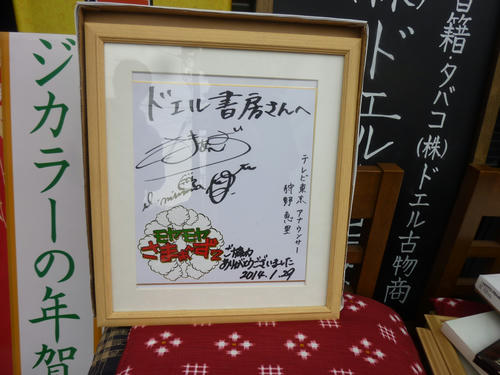 ジカラーの年賀
ドエル書房さんへ
テレビ東京 アナウンサー
狩野 恵里
モヤモヤ
さまぁ〜ず2
ご協力
ありがとうございました
2014.1.29
ドエル
書籍・タバコ(株)ドエル古物商